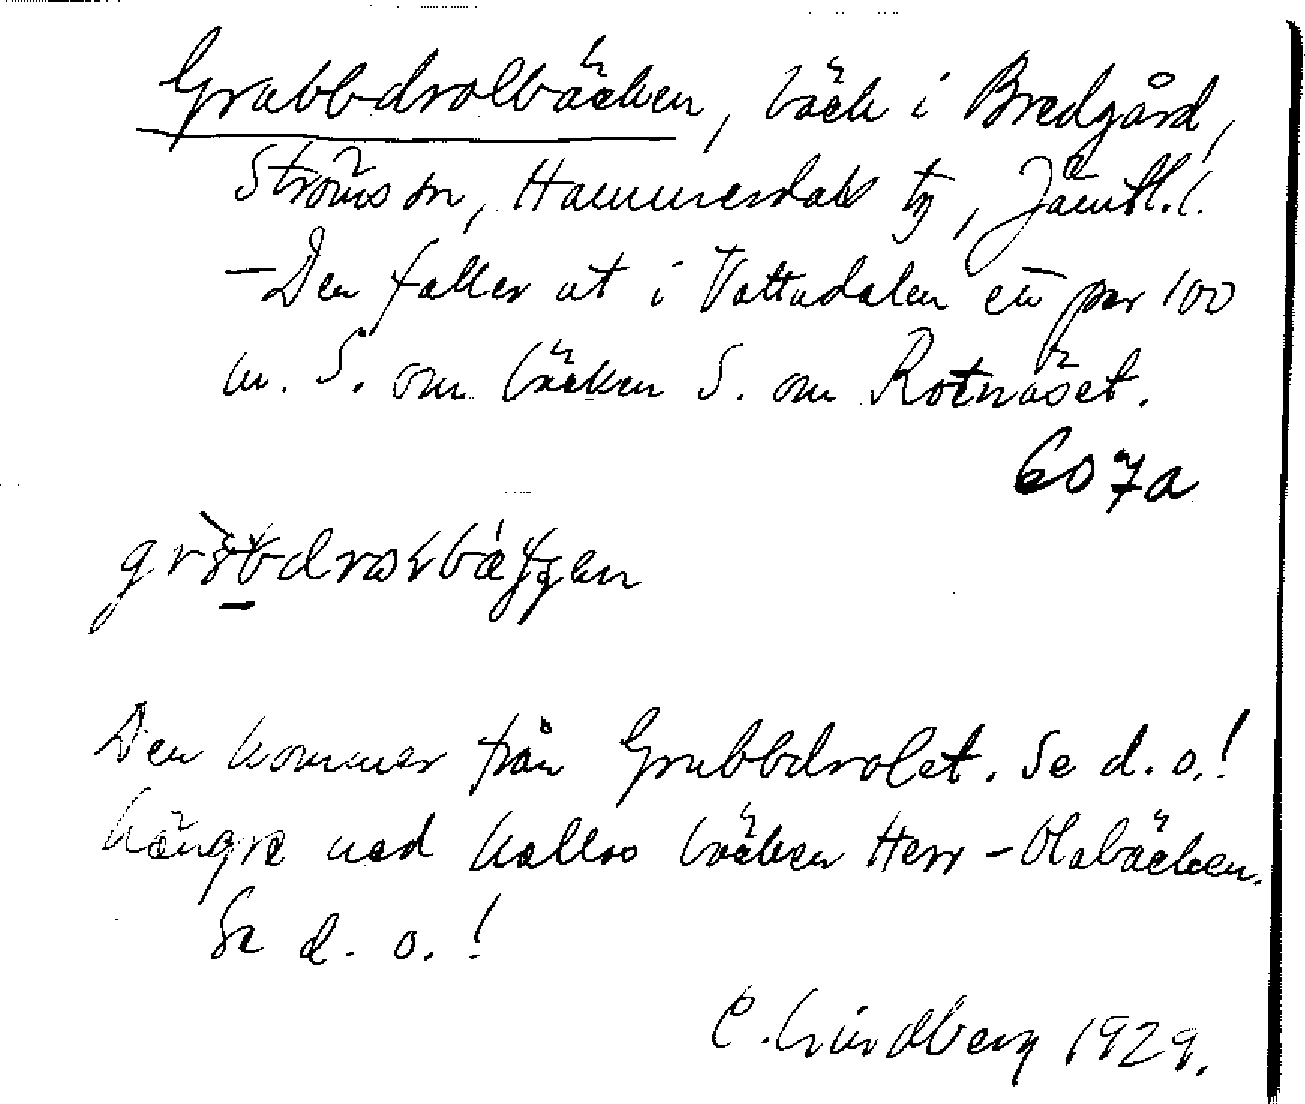 Grubbdrolbäcken, bäck i Bredgård,
Ströms sn, Hammerdals tg, Jämtl. l.
- Den faller ut i Vattudalen ett par 100
m. S. om bäcken S. om Rotnäset.
607a
Den kommer från Grubbdrolet. Se d. o.!
Längre ned kallas bäcken Herr-Olabäcken.
Se d. o.!
C. Lindberg 1929.